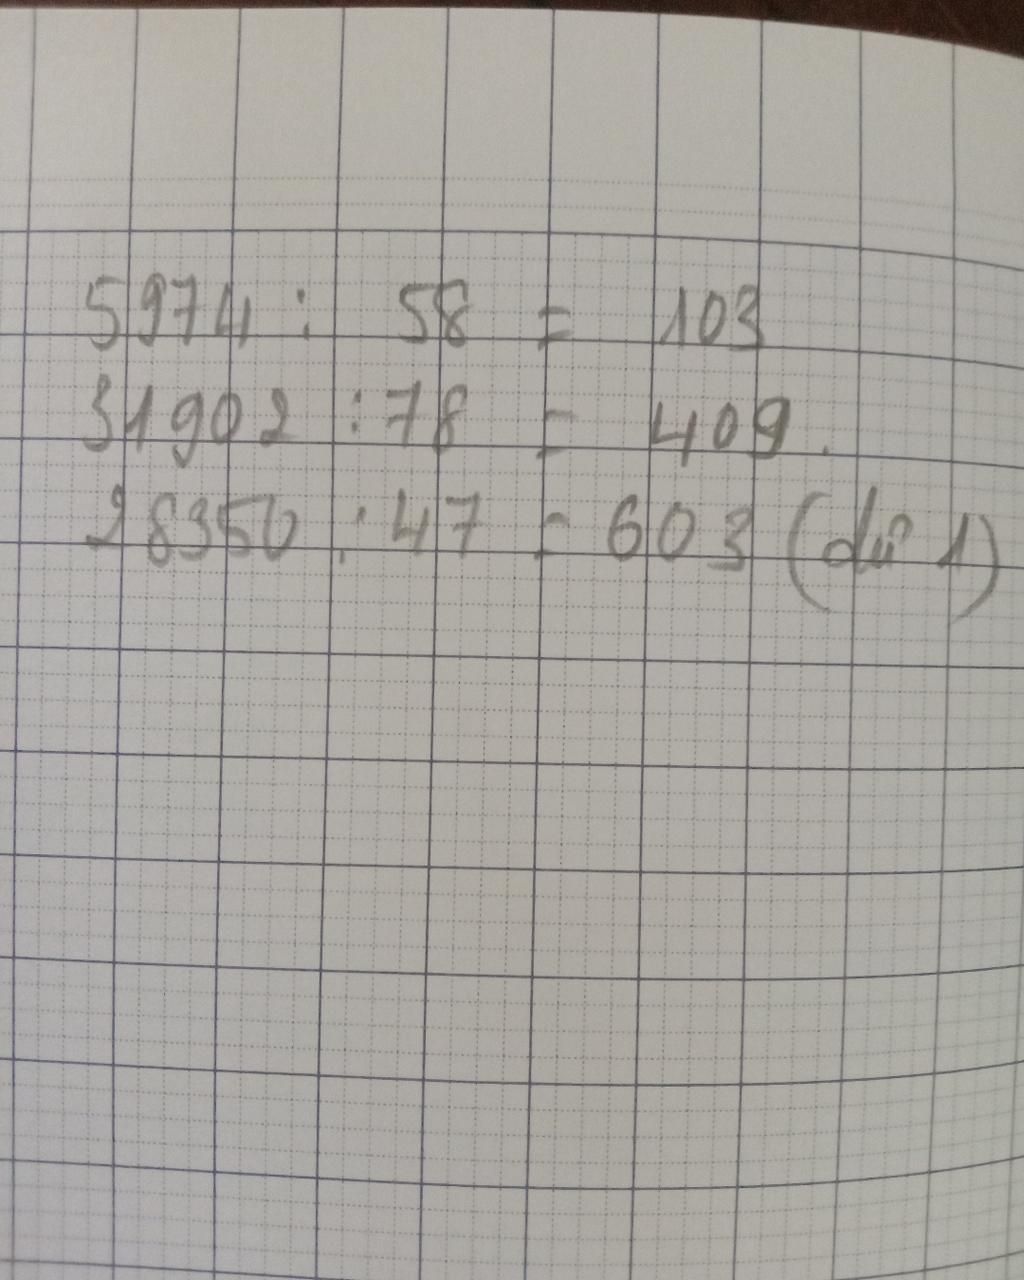 5974 : 58 = 103
31902 : 78 = 409.
28350 : 47 = 603 (dư 1)